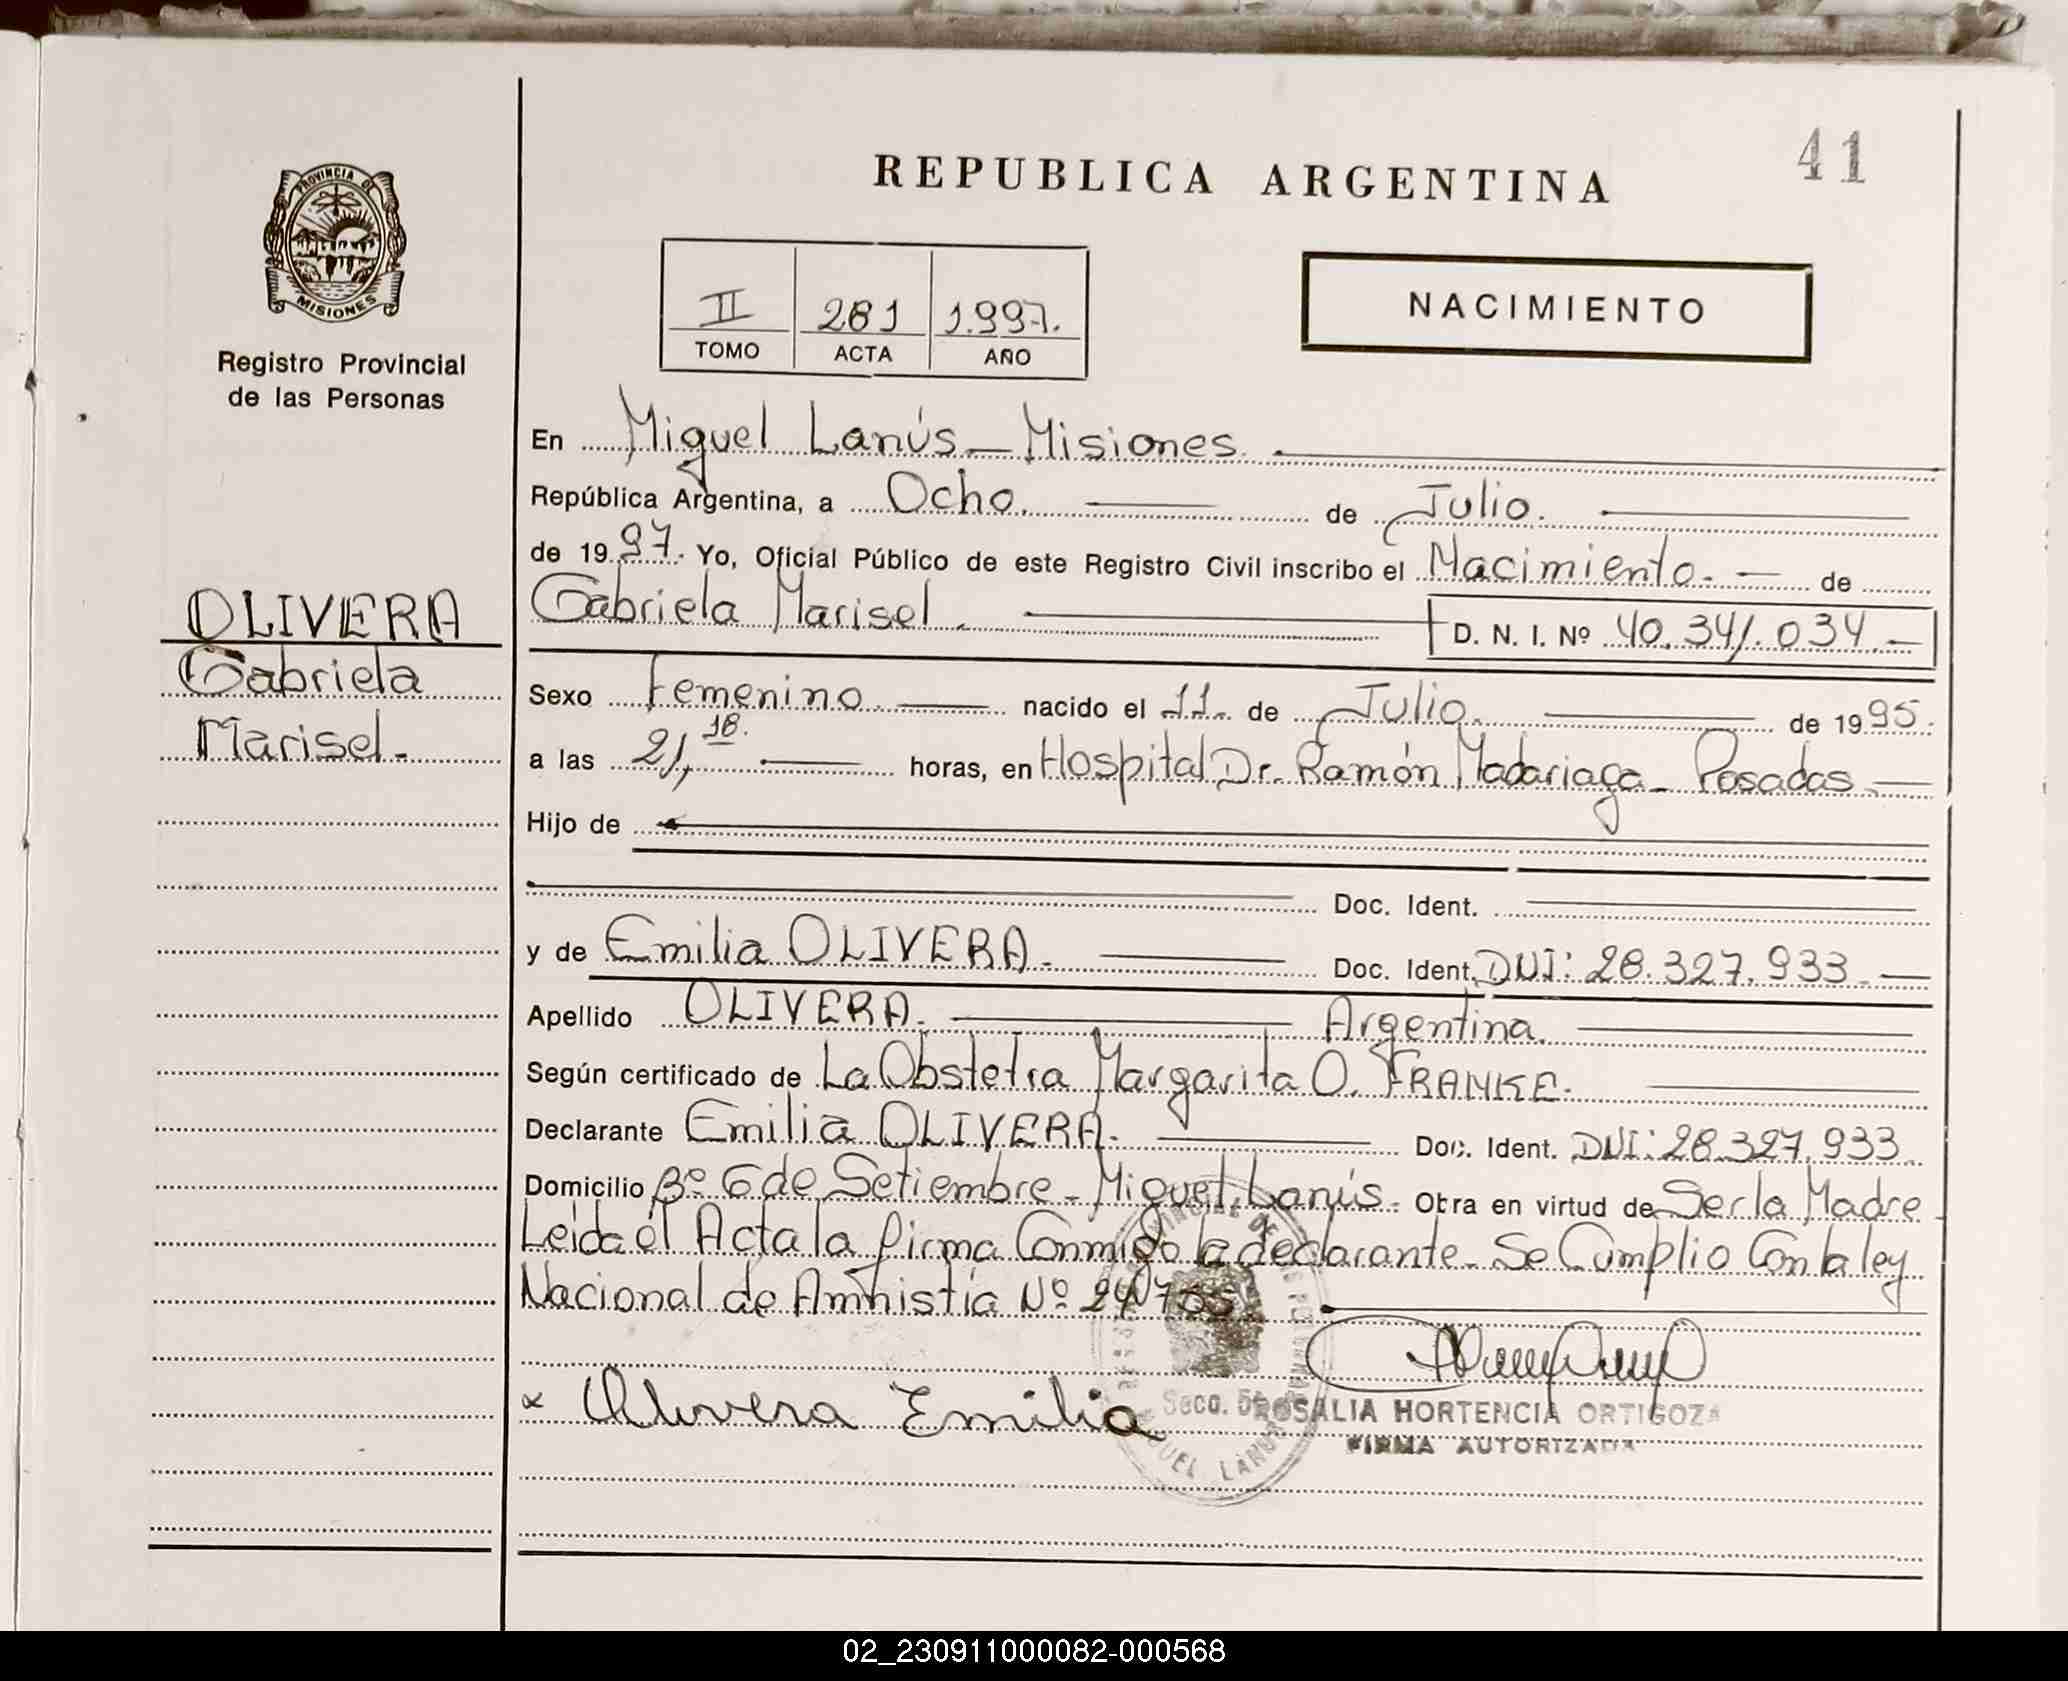 41
REPUBLICA ARGENTINA
PROVINCIA DE
MISIONES
Registro Provincial
de las Personas
II 281 1.997.
TOMO ACTA AÑO
NACIMIENTO
OLIVERA
Gabriela
Marisel.-
En Miguel Lanús - Misiones.
República Argentina, a Ocho. de Julio.
de 1997. Yo, Oficial Público de este Registro Civil inscribo el Nacimiento. - de
Gabriela Marisel. D. N. I. Nº 40.341.034.-
Sexo Femenino. nacido el 11. de Julio. de 1995.
a las 21,18. horas, en Hospital Dr. Ramón Madariaga - Posadas.-
Hijo de
Doc. Ident.
y de Emilia OLIVERA. Doc. Ident. DNI: 28.327.933.-
Apellido OLIVERA. Argentina.
Según certificado de La Obstetra Margarita O. FRANKE.
Declarante Emilia OLIVERA. Doc. Ident. DNI: 28.327.933.
Domicilio Bº 6 de Setiembre - Miguel Lanús. Obra en virtud de Ser la Madre
Leida el Acta la firma Conmigo la declarante - Se Cumplio Con la ley
Nacional de Amnistía Nº 24755.
x Olivera Emilia
ROSALIA HORTENCIA ORTIGOZA
FIRMA AUTORIZADA
02_230911000082-000568